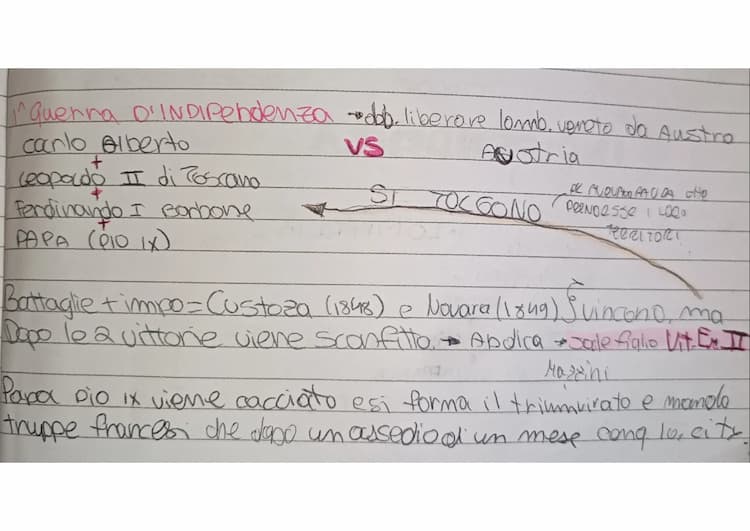 1^ Guerra D'INDIPendenza → dbb. liberare lomb. veneto da Austro
Carlo Alberto VS AUStria
+
Leopoldo II di Toscana
+
Ferdinando I Borbone
+
PAPA (PIO IX)
SI TOLGONO
AVEVANO PAURA che
PRENDESSE I LORO
TERRITORI
Battaglie + impo = Custoza (1848) e Novara (1849) vincono, ma
Dopo le 2 vittorie viene sconfitto → Abdica → sale figlio Vit. Em. II
Mazzini
Papa Pio IX viene cacciato e si forma il triumvirato e manda
truppe francesi che dopo un assedio di un mese conq la citt.